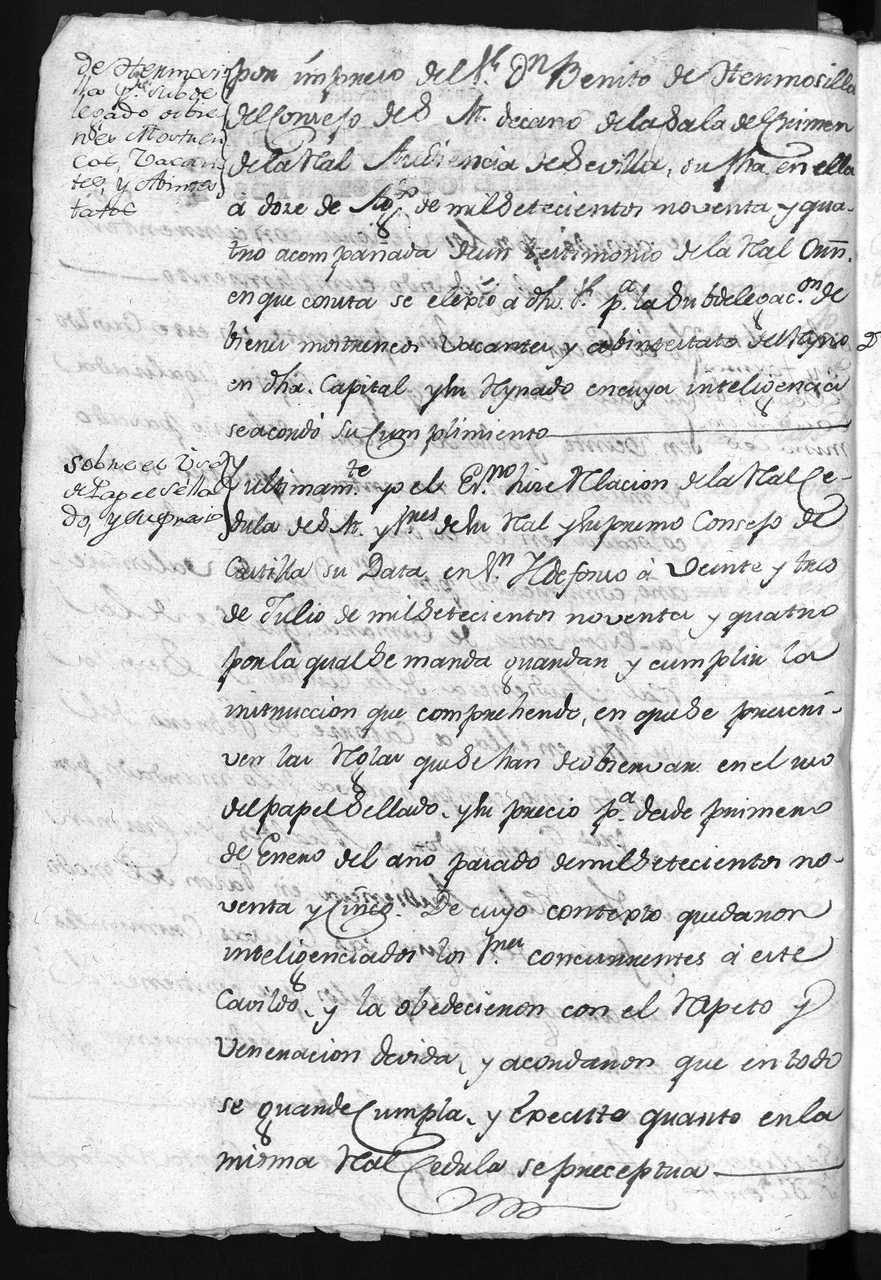 de Hermosi
lla pr. subde
legado sobre
vnes Mostren
cos, Vacan
tes, y Abintes
tatos
por impreso del Sr. Dn Benito de Hermosilla
del Consejo de S M. decano de la Sala del Crimen
de la Rl Audiencia de Sevilla, su fha. en ella
á doze de Agto de mil Setecientos noventa y qua-
tro acompañada de un testimonio de la Rl Orn.
en que consta se elexió a dho. Sr. pa. la Subdelegacon de
bienes mostrencos Vacantes y abintestato del Reyno
en dha. Capital y su Reynado en cuya inteligencia
se acordó su Cumplimiento
Sobre el Uso
de Papel Sella
do, y su precio
Y ultimamte. yo el Esno hize Relacion de la Rl Ce-
dula de S M. y Sres de su Rl y Supremo Consejo de
Castilla su Data en Sn Ildefonso á Veinte y tres
de Julio de mil Setecientos noventa y quatro
por la qual Se manda guardar y cumplir la
instruccion que comprehende, en que Se previni-
ven las Reglas que Se han de observar en el uso
del papel Sellado, y su precio pa. desde primero
de Enero del año pasado de mil Setecientos no-
venta y Cinco. De cuyo contexto quedaron
inteligenciados los Sres concurrentes á este
Cavildo, y la obedecieron con el Respeto y
Veneracion devida, y acordaron que en todo
se guarde Cumpla, y Execute quanto en la
misma Rl Cedula se preceptua